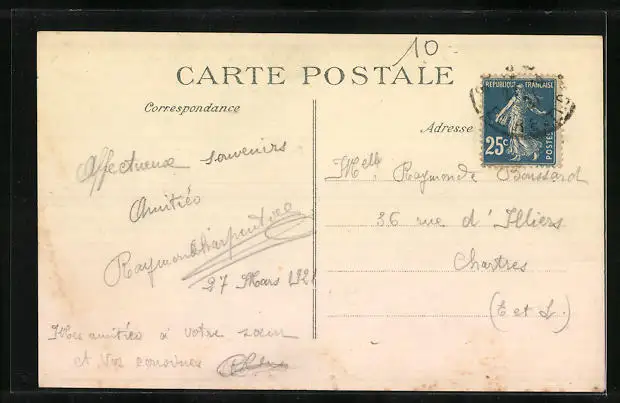 10
CARTE POSTALE
Correspondance
Adresse
REPUBLIQUE FRANÇAISE
25c
POSTES
Affectueux souvenirs
Amitiés
Raymond Charpentier
27 Mars 1921
Mes amitiés à votre sœur
et vos cousines
Melle Raymonde Boussard
36 rue d'Illiers
Chartres
(E et L.)